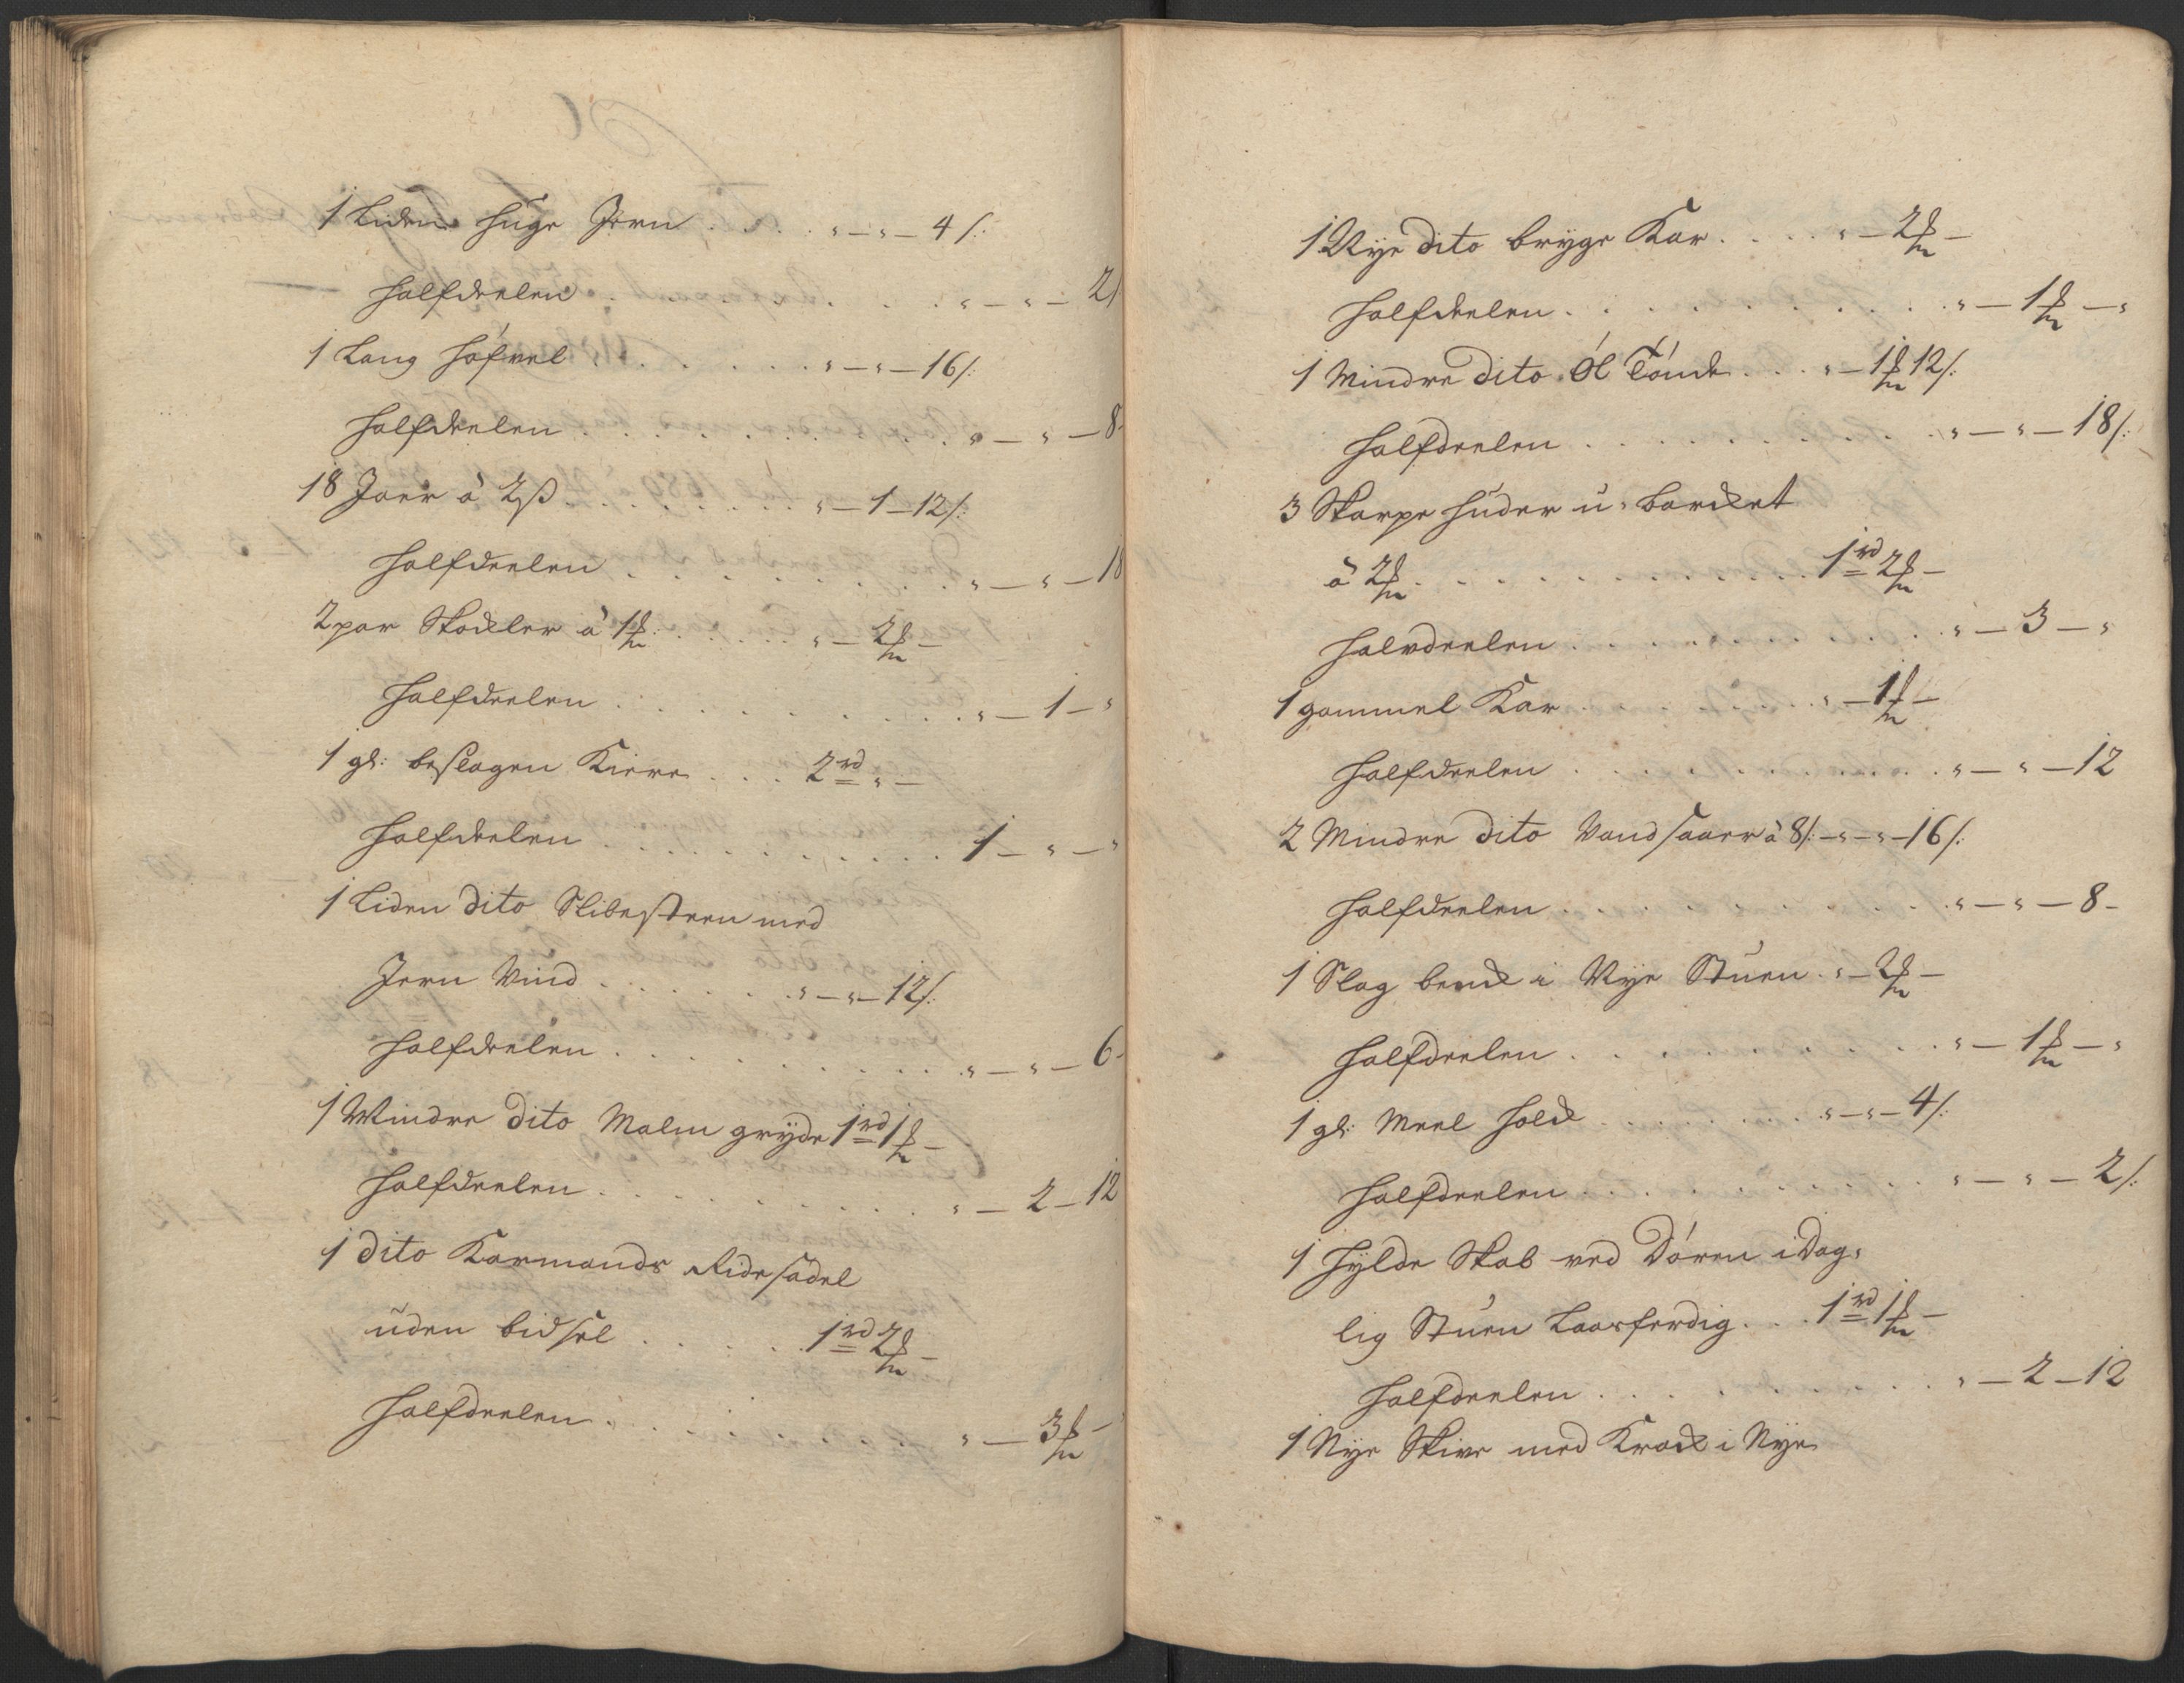 1 Liden Huge Jern . . . . " — " — 4 ß:
Halfdeelen . . . . . . . " — " — 2 ß
1 Lang Höfvel . . . . . " — " — 16 ß:
Halfdeelen . . . . . . . " — " — 8 -
18 Joer à 2 ß . . . . . " — 1 — 12 ß:
Halfdeelen . . . . . . . " — " — 18
2 par Skokler à 1 mk: . . . . " — 2 mk —
Halfdeelen . . . . . . . " — 1 — "
1 gl: beslagen Kiere . . . 2 rd " —
Halfdeelen . . . . . . . 1 — " — "
1 Liden dito Slibesteen med
Jern Vind . . . . . " — " — 12 ß:
Halfdeelen . . . . . . . " — " — 6 -
1 Mindre dito Malm gryde 1 rd 1 mk —
Halfdeelen . . . . . . . " — 2 — 12
1 dito Karmands Ridesadel
uden bidsel . . . . . 1 rd 2 mk —
Halfdeelen . . . . . . . " — 3 mk —
1 Nye dito brygge Kar . . . . " — 2 mk —
Halfdeelen . . . . . . . " — 1 mk — "
1 Mindre dito Öl Tönde . . . " — 1 mk 12 ß:
Halfdeelen . . . . . . . " — " — 18 ß:
3 Skarpe Huder u-barcket
à 2 mk . . . . . . . 1 rd 2 mk —
Halvdeelen . . . . . . . " — 3 — "
1 gammel Kar . . . . . " — 1 mk —
Halfdeelen . . . . . . . " — " — 12
2 Mindre dito Vandsaaer à 8 ß: — " — " — 16 ß:
Halfdeelen . . . . . . . " — " — 8 -
1 Slag benck i Nye Stuen . " — 2 mk —
Halfdeelen . . . . . . . " — 1 mk — "
1 gl: Meel Hold . . . . . " — " — 4 ß:
Halfdeelen . . . . . . . " — " — 2 ß:
1 Hylde Skab ved Dören i Dag-
lig Stuen Laasferdig . . . 1 rd 1 mk —
Halfdeelen . . . . . . . " — 2 — 12
1 Nye Skive med Krack i Nye